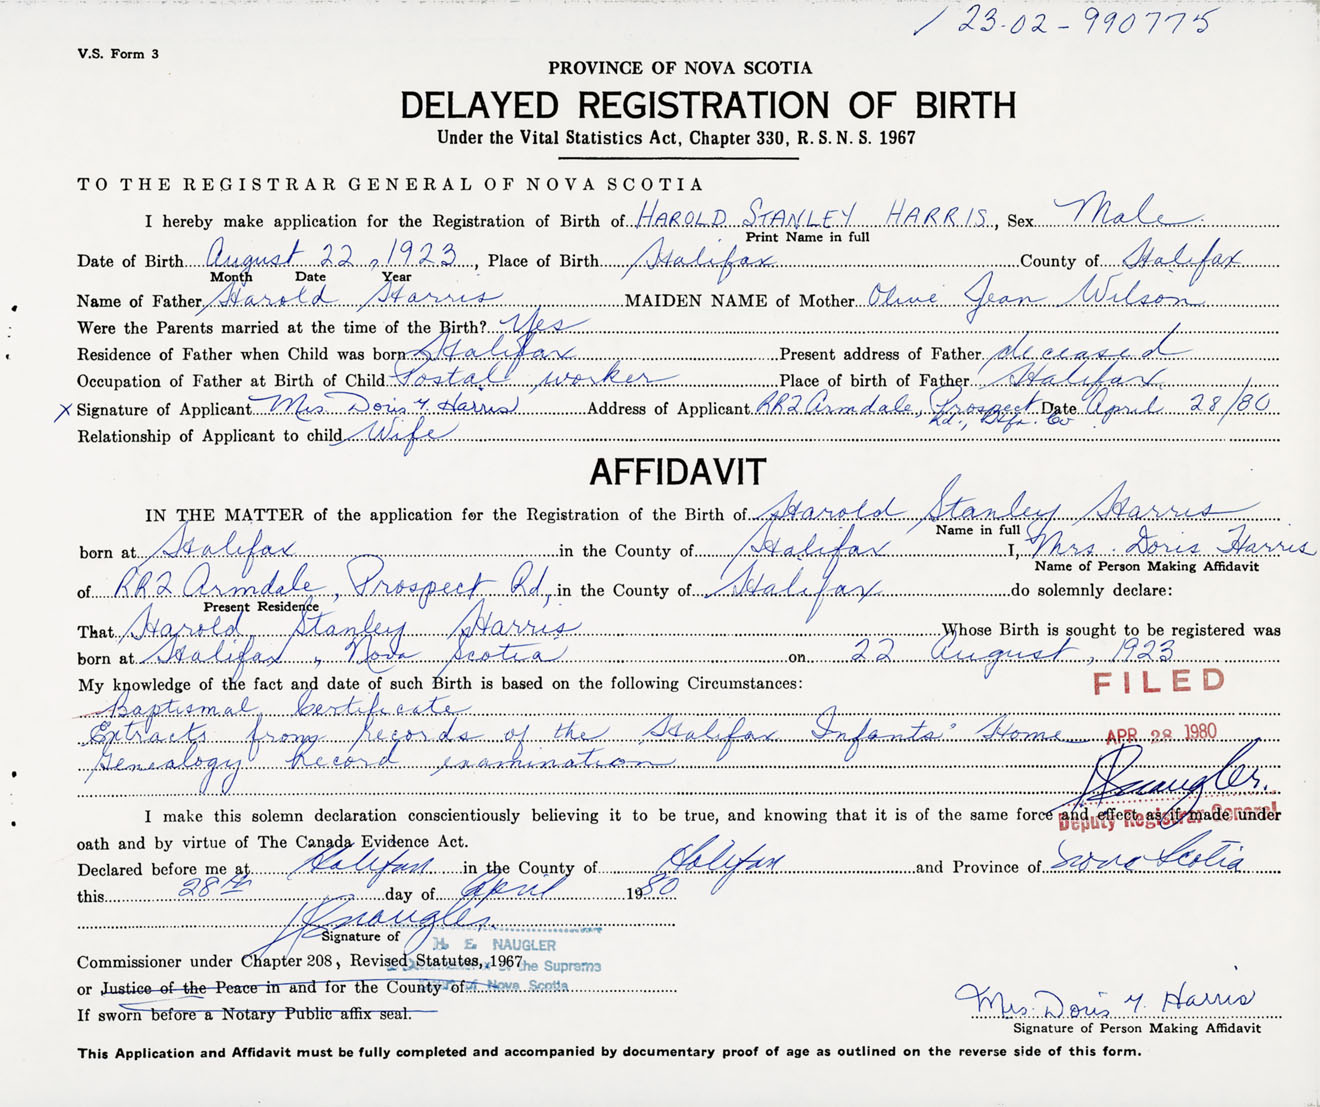 123-02-990775
V.S. Form 3
PROVINCE OF NOVA SCOTIA
DELAYED REGISTRATION OF BIRTH
Under the Vital Statistics Act, Chapter 330, R. S. N. S. 1967
TO THE REGISTRAR GENERAL OF NOVA SCOTIA
I hereby make application for the Registration of Birth of HAROLD STANLEY HARRIS, Sex Male
Print Name in full
Date of Birth August 22, 1923, Place of Birth Halifax County of Halifax
Month Date Year
Name of Father Harold Harris MAIDEN NAME of Mother Olive Jean Wilson
Were the Parents married at the time of the Birth? Yes
Residence of Father when Child was born Halifax Present address of Father deceased
Occupation of Father at Birth of Child Postal worker Place of birth of Father Halifax
X Signature of Applicant Mrs. Doris Y. Harris Address of Applicant RR2 Armdale, Prospect Date April 28/80
Rd., Hfx. Co
Relationship of Applicant to child Wife
AFFIDAVIT
IN THE MATTER of the application for the Registration of the Birth of Harold Stanley Harris
Name in full
born at Halifax in the County of Halifax I, Mrs. Doris Harris
Name of Person Making Affidavit
of RR2 Armdale, Prospect Rd, in the County of Halifax do solemnly declare:
Present Residence
That Harold Stanley Harris Whose Birth is sought to be registered was
born at Halifax, Nova Scotia on 22 August, 1923
My knowledge of the fact and date of such Birth is based on the following Circumstances:
FILED
Baptismal Certificate
Extracts from records of the Halifax Infants' Home
APR 28 1980
Genealogy Record examination
HENaugler
I make this solemn declaration conscientiously believing it to be true, and knowing that it is of the same force and effect as if made under
Deputy Registrar General
oath and by virtue of The Canada Evidence Act.
Declared before me at Halifax in the County of Halifax and Province of Nova Scotia
this 28th day of April 1980
HENaugler
Signature of
H. E. NAUGLER
Commissioner under Chapter 208, Revised Statutes, 1967
A Commissioner of the Supreme
or Justice of the Peace in and for the County of
Court of Nova Scotia
If sworn before a Notary Public affix seal.
Mrs. Doris Y. Harris
Signature of Person Making Affidavit
This Application and Affidavit must be fully completed and accompanied by documentary proof of age as outlined on the reverse side of this form.